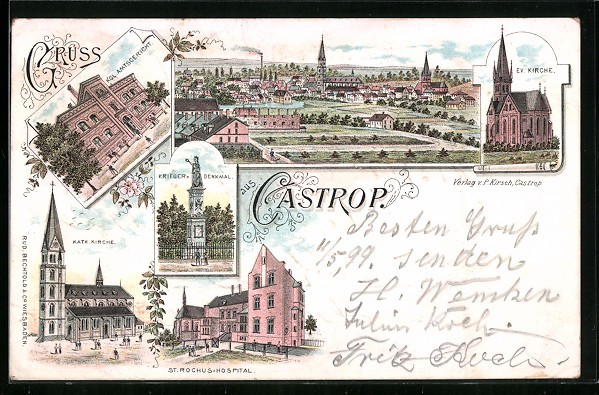 GRUSS
KGL. AMTSGERICHT.
EV. KIRCHE.
KRIEGER DENKMAL.
AUS
CASTROP.
Verlag v. P. Kirsch, Castrop
KATH. KIRCHE.
RUD. BECHTOLD & Co WIESBADEN.
ST. ROCHUS-HOSPITAL.
Besten Gruß
11/5.99. senden
H. Wemken
Julius Koch.
Fritz Koch.